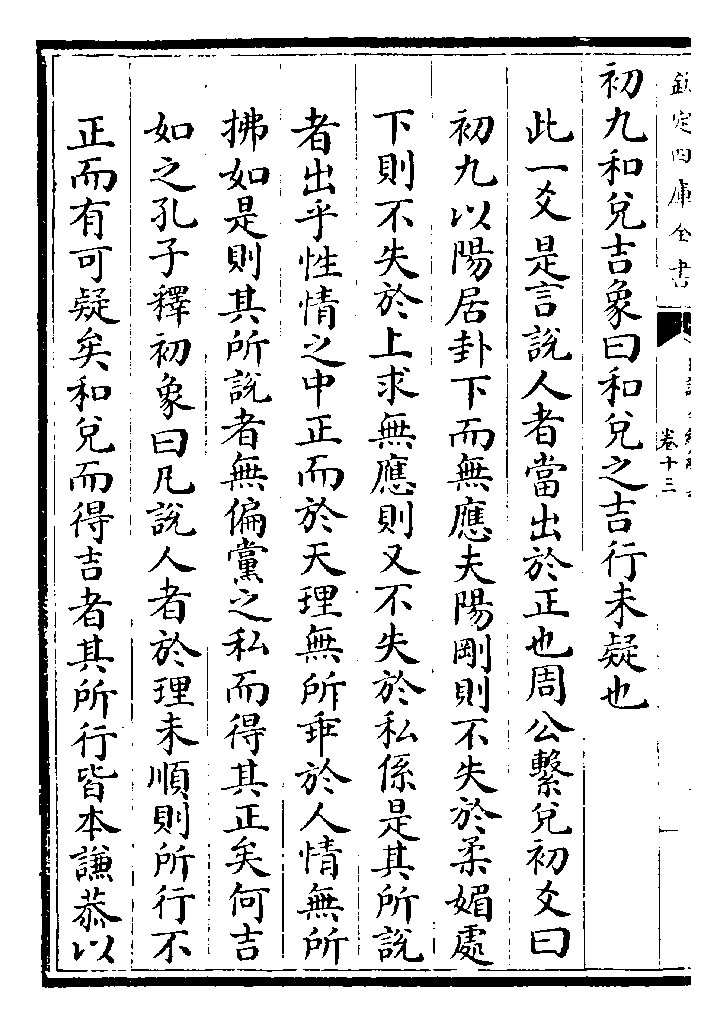 欽定四庫全書
卷十三
初九和兌吉象曰和兌之吉行未疑也
此一爻是言說人者當出於正也周公繫兌初爻曰
初九以陽居卦下而無應夫陽剛則不失於柔媚處
下則不失於上求無應則又不失於私係是其所說
者出乎性情之中正而於天理無所乖於人情無所
拂如是則其所說者無偏黨之私而得其正矣何吉
如之孔子釋初象曰凡說人者於理未順則所行不
正而有可疑矣和兌而得吉者其所行皆本謙恭以